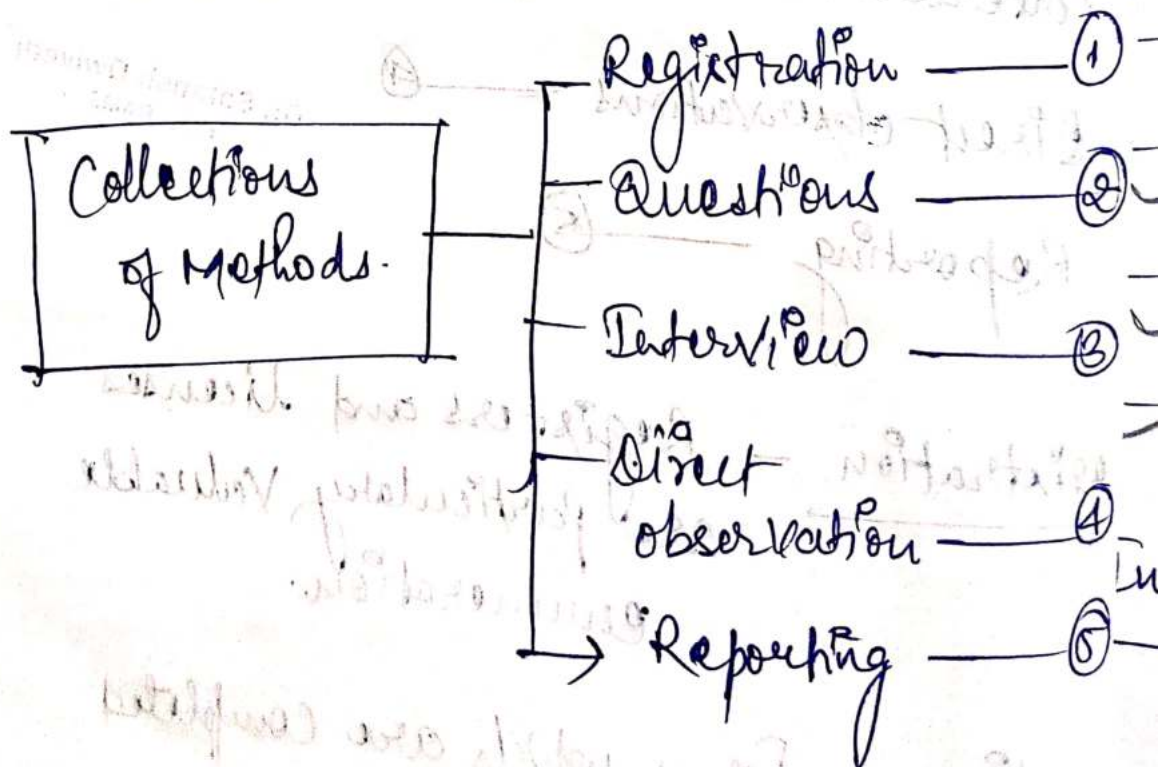 Collections
of Methods.
Registration ①
Questions ②
Interview ③
Direct
observation ④
In
Reporting ⑤